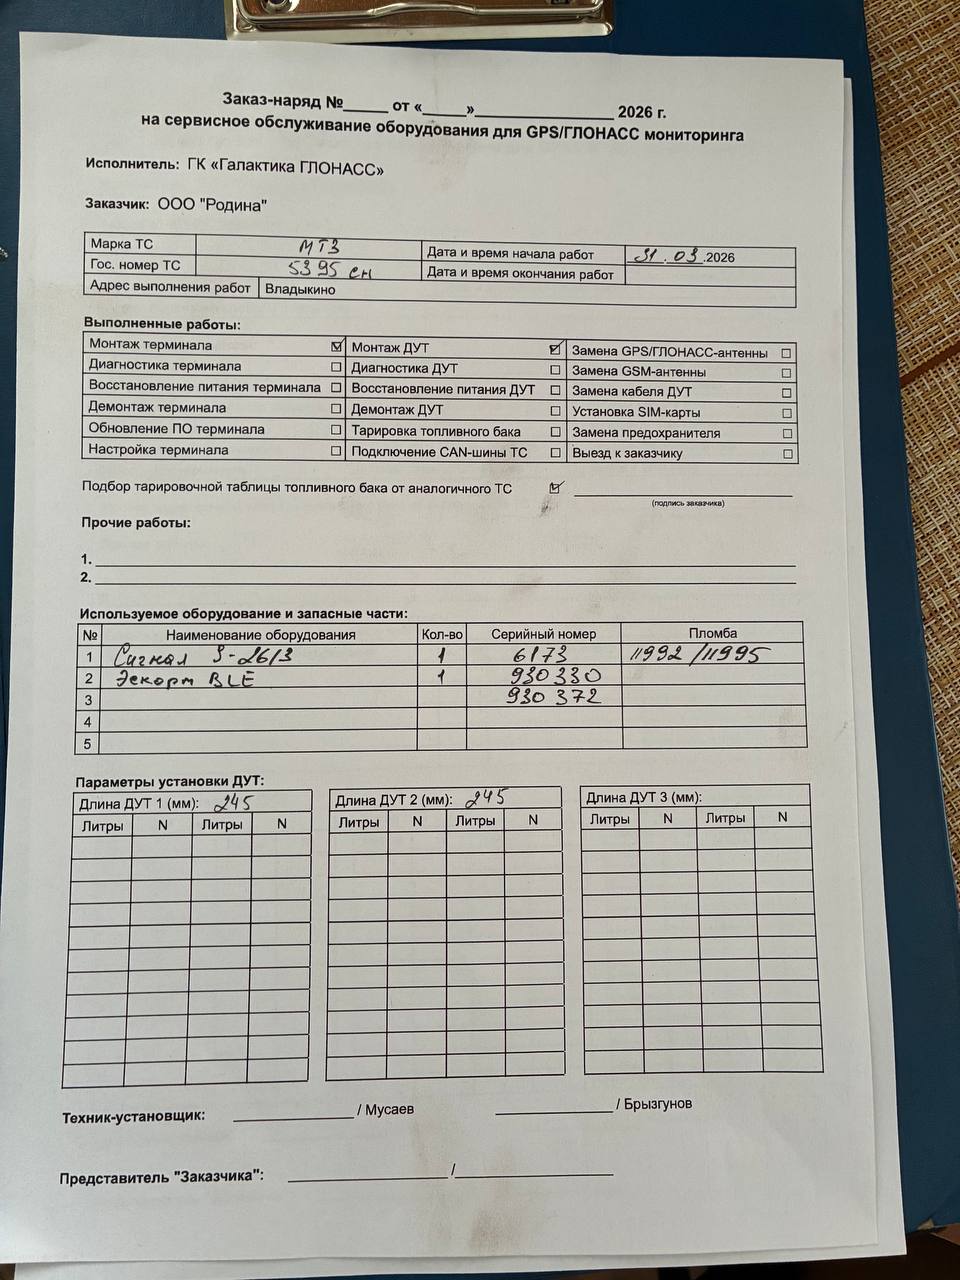 Заказ-наряд №_____ от «_____»________________ 2026 г.
на сервисное обслуживание оборудования для GPS/ГЛОНАСС мониторинга
Исполнитель: ГК «Галактика ГЛОНАСС»
Заказчик: ООО "Родина"
Марка ТС МТЗ Дата и время начала работ 31.03.2026
Гос. номер ТС 5395 СН Дата и время окончания работ
Адрес выполнения работ Владыкино
Выполненные работы:
Монтаж терминала ☑ Монтаж ДУТ ☑ Замена GPS/ГЛОНАСС-антенны ☐
Диагностика терминала ☐ Диагностика ДУТ ☐ Замена GSM-антенны ☐
Восстановление питания терминала ☐ Восстановление питания ДУТ ☐ Замена кабеля ДУТ ☐
Демонтаж терминала ☐ Демонтаж ДУТ ☐ Установка SIM-карты ☐
Обновление ПО терминала ☐ Тарировка топливного бака ☐ Замена предохранителя ☐
Настройка терминала ☐ Подключение CAN-шины ТС ☐ Выезд к заказчику ☐
Подбор тарировочной таблицы топливного бака от аналогичного ТС ☑
(подпись заказчика)
Прочие работы:
1.
2.
Используемое оборудование и запасные части:
№ Наименование оборудования Кол-во Серийный номер Пломба
1 Сигнал S-2613 1 6173 11992/11995
2 Эскорт BLE 1 930330
3 930372
4
5
Параметры установки ДУТ:
Длина ДУТ 1 (мм): 245 Длина ДУТ 2 (мм): 245 Длина ДУТ 3 (мм):
Литры N Литры N Литры N Литры N Литры N Литры N
Техник-установщик: / Мусаев / Брызгунов
Представитель "Заказчика": /